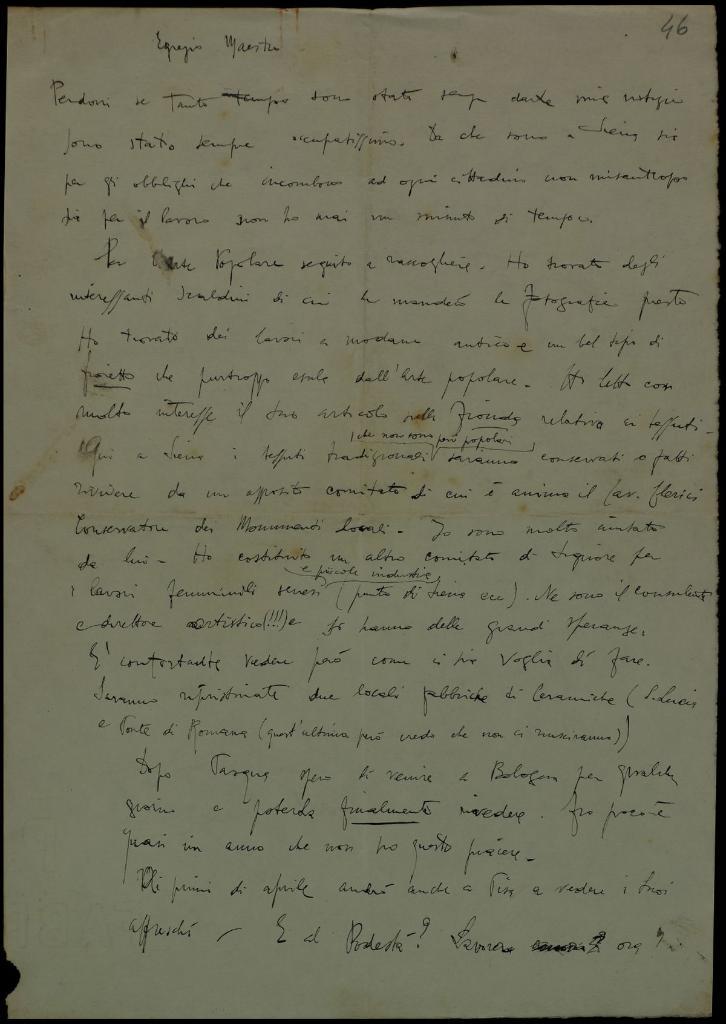 46
Egregio Maestro
Perdoni se tanto tempo sono stato senza darle mie notizie
sono stato sempre occupatissimo. Da che sono a Siena sia
per gli obblighi che incombono ad ogni cittadino non misantropo
sia per il lavoro non ho mai un minuto di tempo.
Per l'Arte Popolare seguito a raccogliere. Ho trovato degli
interessanti scaldini di cui le manderò le fotografie presto
Ho trovato dei lavori a modano antico e un bel tipo di
che purtroppo esula dall'arte popolare. Ho letto con
molto interesse il suo articolo sulla Fionda relativo ai tessuti.
che non sono più popolari
Qui a Siena i tessuti tradizionali saranno conservati e fatti
rivivere da un apposito comitato di cui è anima il Cav. Clerici
Conservatore dei Monumenti locali. Io sono molto aiutato
da lui. Ho costituito un altro comitato di signore per
e piccole industrie
i lavori femminili senesi (punto di Siena ecc). Ne sono il consulente
e direttore artistico (!!!) e si hanno delle grandi speranze.
E' confortante vedere però come ci sia voglia di fare.
Saranno ripristinate due locali fabbriche di ceramiche (S. Lucia
e Fonte di Romana (quest'ultima però credo che non ci riusciranno))
Dopo Pasqua spero di venire a Bologna per qualche
giorno e poterla finalmente rivedere. Fra poco è
quasi un anno che non ho questo piacere.
Ai primi di aprile andrò anche a Pisa a vedere i suoi
affreschi — E al Podestà? Lavora ora?